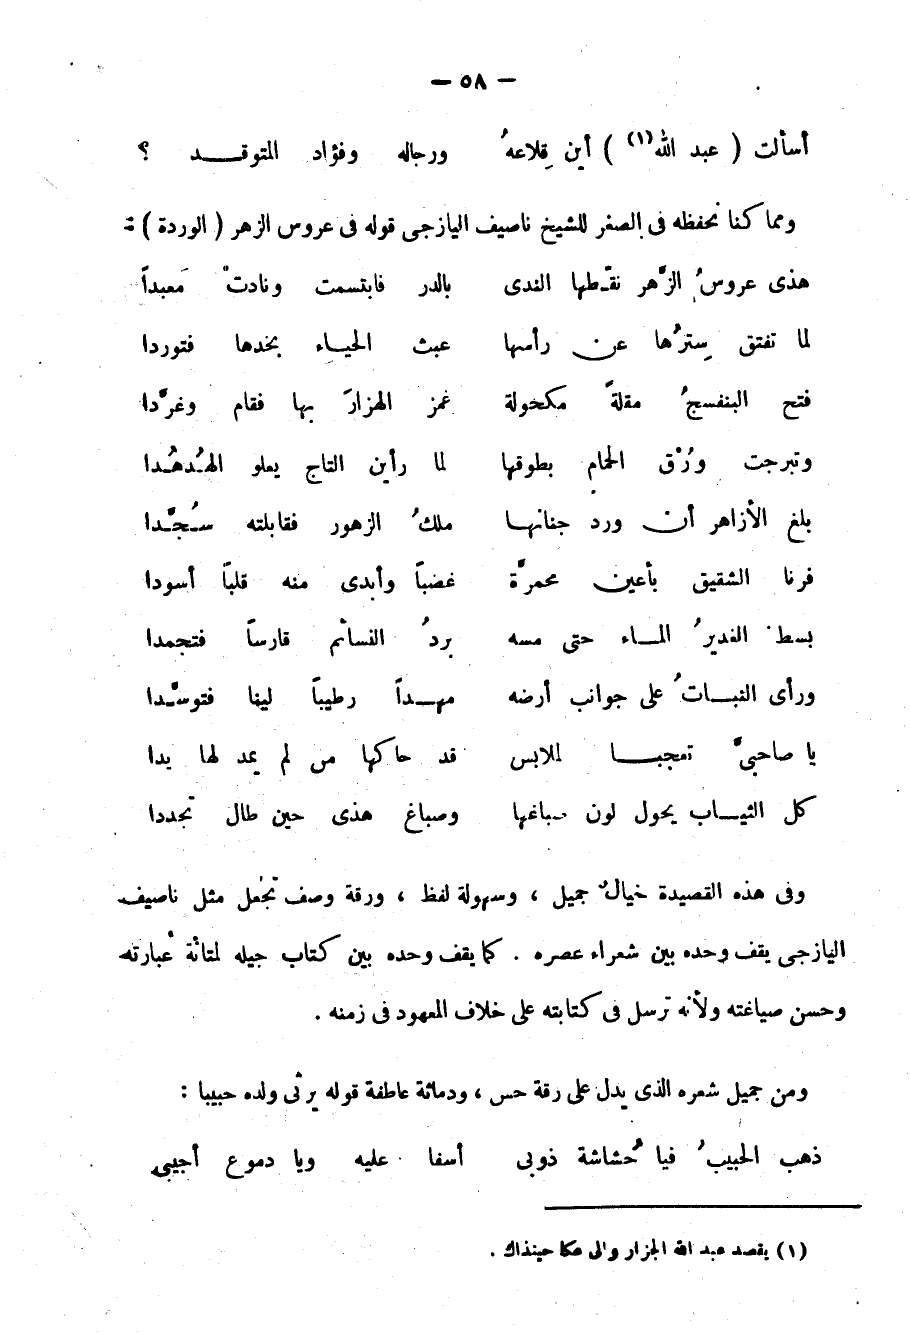 — ٥٨ —
أسألت ( عبد الله(١) ) أين قِلاعهُ ورجاله وفؤاد المتوقـــد ؟
ومما كنا نحفظه فى الصغر للشيخ ناصيف اليازجى قوله فى عروس الزهر ( الوردة ) :
هذى عروسُ الزَّهر نقّـطها الندى بالدر فابتسمت ونادتْ مَعبداً
لما تفتق سِترُها عن رأسها عبث الحيـاء بخدها فتوردا
فتح البنفسجُ مقلةً مكحولة غمز الهزارَ بها فقام وغرَّدا
وتبرجت ورُرْق الحمام بطوقها لما رأين التاج يعلو الهُـدهُـدا
بلغ الأزاهر أن ورد جنانهـا ملكُ الزهور فقابلته سُـجَّـدا
فرنا الشقيق بأعين محمرَّة غضباً وأبدى منه قلباً أسودا
بسط الغديرُ المـاء حتى مسه بردُ النسائم قارساً فتجمدا
ورأى النبـاتُ على جوانب أرضه مهـداً رطيباً لينا فتوسَّـدا
يا صاحبىَّ تعجبـا لملابس قد حاكها من لم يمد لها يدا
كل الثيـاب يحول لون صباغها وصباغ هذى حين طال تجددا
وفى هذه القصيدة خيالٌ جميل ، وسهولة لفظ ، ورقة وصف تجعل مثل ناصيف
اليازجى يقف وحده بين شعراء عصره . كما يقف وحده بين كتاب جيله لمتانة عبارته
وحسن صياغته ولأنه ترسل فى كتابته على خلاف المعهود فى زمنه .
ومن جميل شعره الذى يدل على رقة حس ، ودماثة عاطفة قوله يرثى ولده حبيبا :
ذهب الحبيبُ فيا حُشاشة ذوبى أسفا عليه ويا دموع أجيبى
(١) يقصد عبد الله الجزار والى عكا حينذاك .